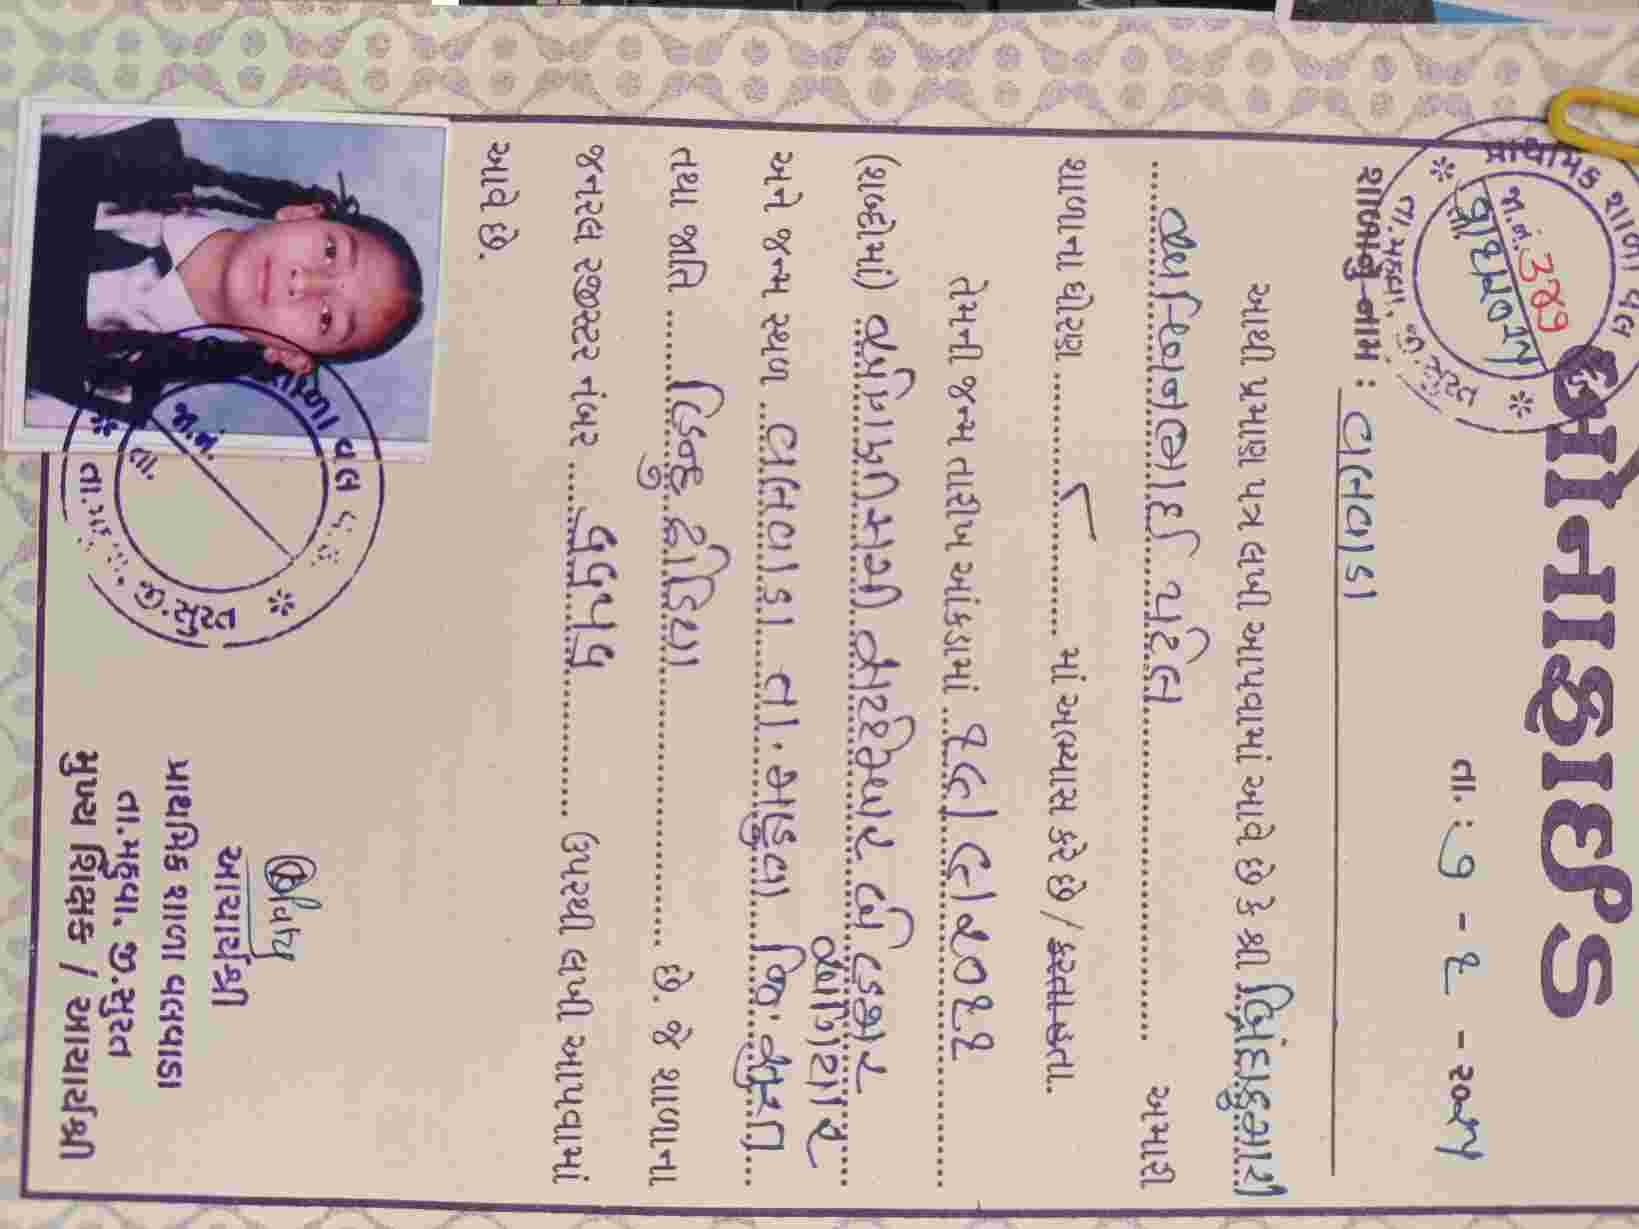 બોનાફાઈડ
પ્રાથમિક શાળા વલ
જા.નં. 3૪૭
તા. ૭ - ૬ - ૨૦૨૫
તા.મહુવા, જિ. સુરત
શાળાનું નામ : વલવાડા
આથી પ્રમાણ પત્ર લખી આપવામાં આવે છે કે શ્રી બિંદુકુમારી
સચિનભાઈ પટેલ અમારી
શાળાના ધોરણ ૮ માં અભ્યાસ કરે છે / કરતા હતા.
તેમની જન્મ તારીખ આંકડામાં
(શબ્દોમાં) સપ્ટેમ્બર બે હજાર
અગિયાર
અને જન્મ સ્થળ વલવાડા તા. મહુવા જિ. સુરત
તથા જાતિ હિન્દુ ઢોડિયા છે. જે શાળાના
જનરલ રજીસ્ટર નંબર ૫૫૫૫ ઉપરથી લખી આપવામાં
આવે છે.
આચાર્યશ્રી
પ્રાથમિક શાળા વલવાડા
તા.મહુવા. જી.સુરત
મુખ્ય શિક્ષક / આચાર્યશ્રી